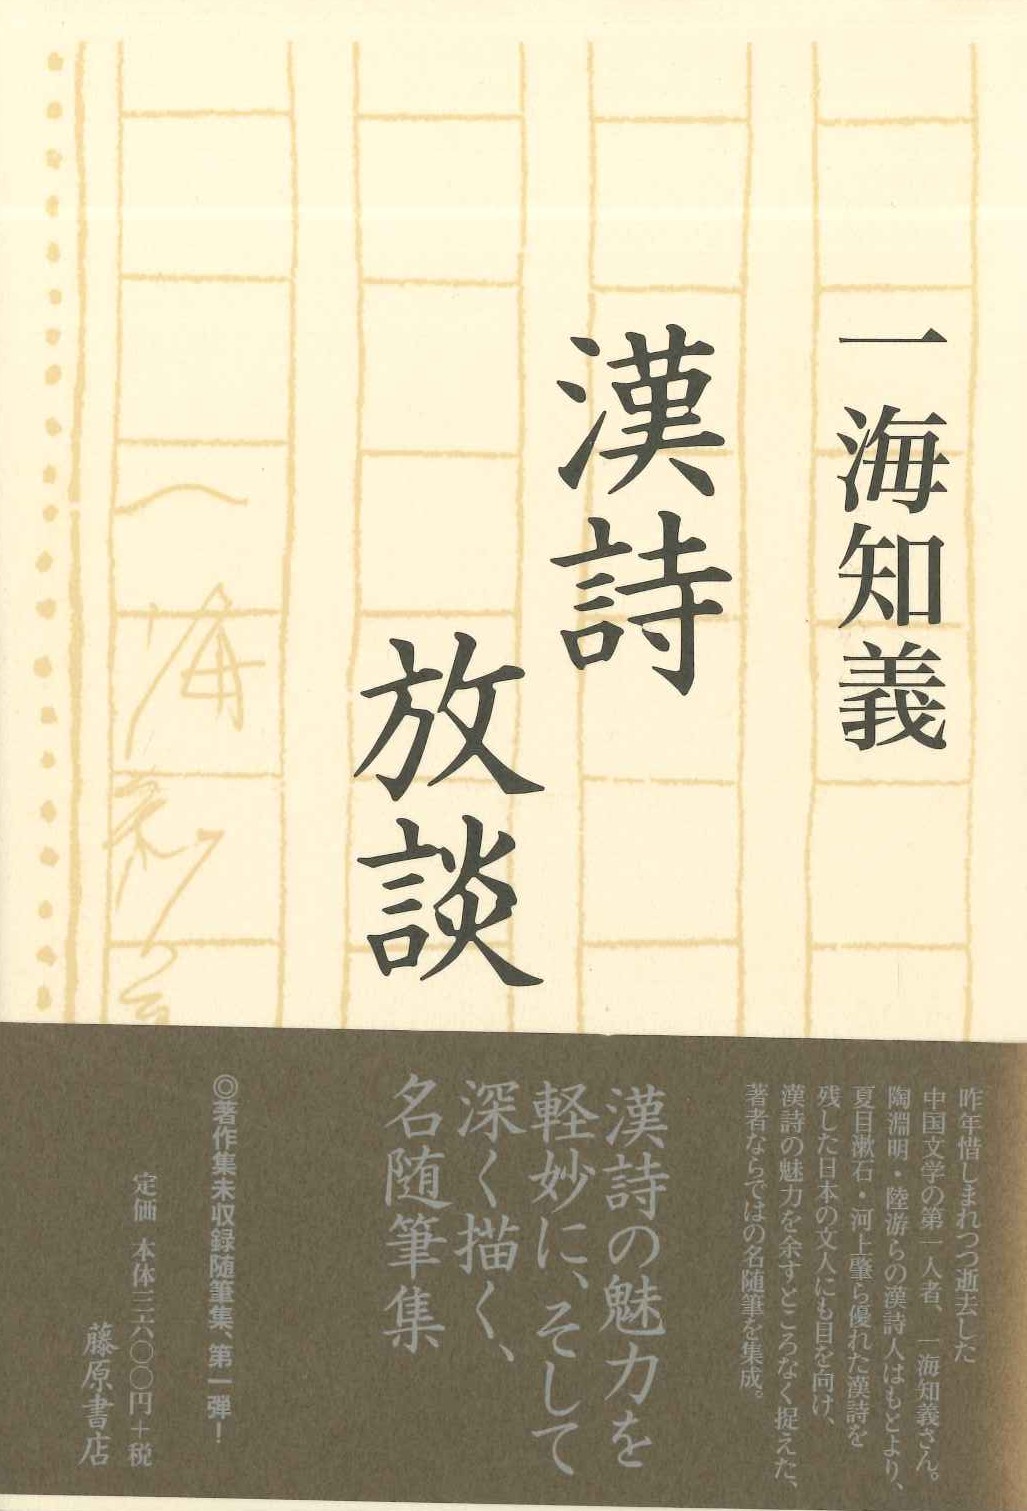 一海知義
漢詩
放談
一海知義
昨年惜しまれつつ逝去した
中国文学の第一人者、一海知義さん。
陶淵明・陸游らの漢詩人はもとより、
夏目漱石・河上肇ら優れた漢詩を
残した日本の文人にも目を向け、
漢詩の魅力を余すところなく捉えた、
著者ならではの名随筆を集成。
漢詩の魅力を
軽妙に、そして
深く描く、
名随筆集
◎著作集未収録随筆集、第一弾！
定価 本体三六〇〇円＋税
藤原書店